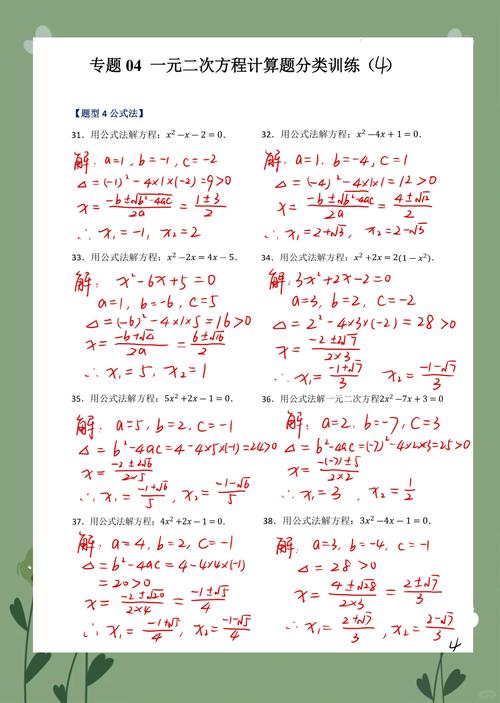 专题 04 一元二次方程计算题分类训练（4）
【题型 4 公式法】
31. 用公式法解方程：x²−x−2=0.
解：a=1, b=-1, c=-2
Δ=(-1)²-4×1×(-2)=9>0
x=(-b±√(b²-4ac))/2a=(1±3)/2
∴ x₁=-1, x₂=2
32. 用公式法解方程：x²−4x+1=0.
解：a=1, b=-4, c=1
Δ=(-4)²-4×1×1=12>0
x=(-b±√(b²-4ac))/2a=(4±√12)/2
∴ x₁=2+√3, x₂=2-√3
33. 用公式法解方程：x²−2x=4x−5.
解：x²-6x+5=0
a=1, b=-6, c=5
Δ=(-6)²-4×1×5=16>0
x=(-b±√Δ)/2a=(6±√16)/2
∴ x₁=5, x₂=1
34. 用公式法解方程：x²+2x=2(1−x²).
解：3x²+2x-2=0
a=3, b=2, c=-2
Δ=2²-4×3×(-2)=28>0
x=(-2±2√7)/(2×3)
∴ x₁=(-1+√7)/3 x₂=(-1-√7)/3
35. 用公式法解方程：5x²+2x−1=0.
解：a=5, b=2, c=-1
Δ=b²-4ac=4-4×5×(-1)=24>0
x=(-2±2√6)/(2×5)
∴ x₁=(-1+√6)/5, x₂=(-1-√6)/5
36. 用公式法解一元二次方程2x²−7x+3=0
解：a=2, b=-7, c=3
Δ=b²-4ac=(-7)²-4×2×3=25>0
x=(-(-7)±5)/(2×2)
∴ x₁=3, x₂=1/2
37. 用公式法解方程：4x²+2x−1=0.
解：a=4, b=2, c=-1
Δ=b²-4ac=4-4×4×(-1)
=20>0
x=(-2±√20)/(2×4)=(-1±√5)/4
∴ x₁=(-1+√5)/4, x₂=(-1-√5)/4
38. 用公式法解方程：3x²−4x−1=0.
解：a=3, b=-4, c=-1
Δ=28>0
x=(4±√28)/(2×3)=(2±√7)/3
∴ x₁=(2+√7)/3, x₂=(2-√7)/3
4